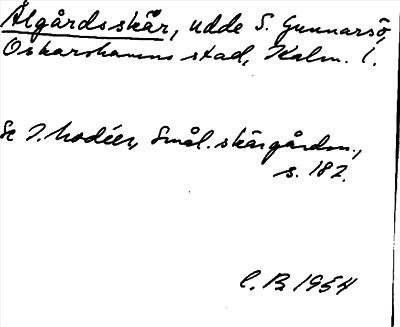 Ålgårdsskär, udde S. Gunnarsö,
Oskarshamns stad, Kalm. l.
Se I. Modéer, Smål. skärgårdsn.,
s. 182.
C. B. 1954